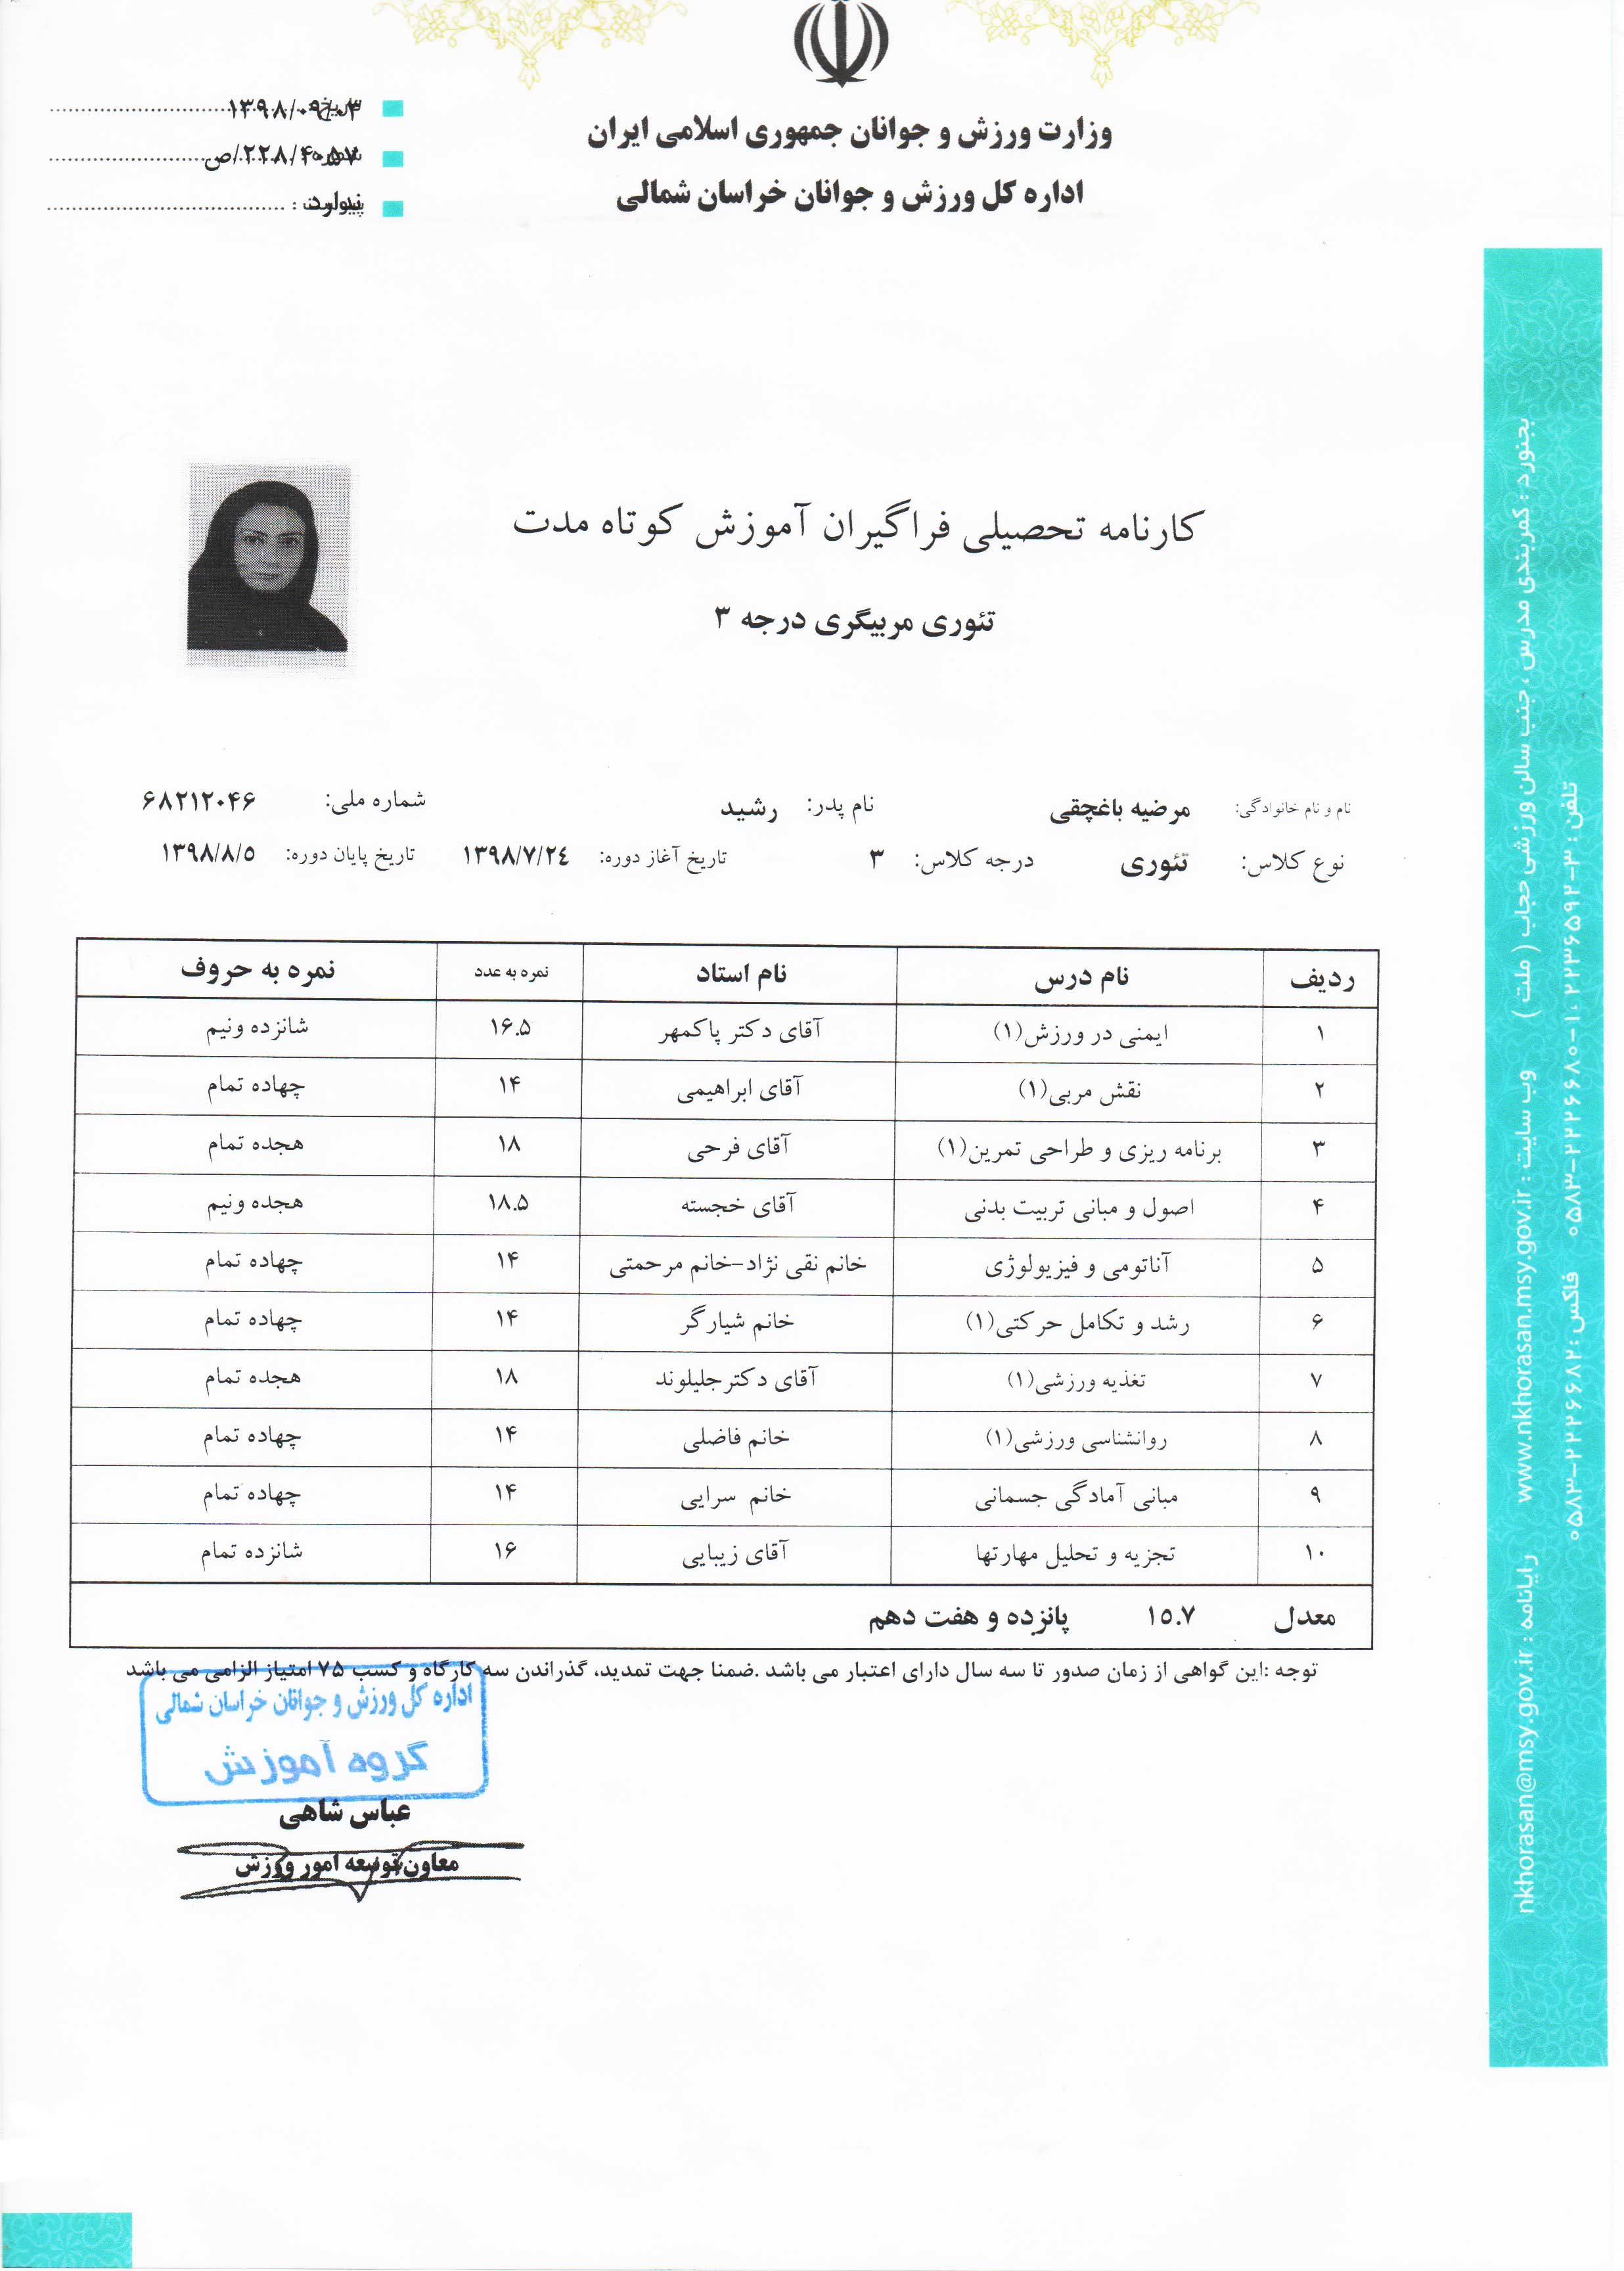 وزارت ورزش و جوانان جمهوری اسلامی ایران
اداره کل ورزش و جوانان خراسان شمالی
۱۳۹۸/۰۹/۰۳
/۲۲۸/ص
ندارد
کارنامه تحصیلی فراگیران آموزش کوتاه مدت
تئوری مربیگری درجه ۳
نام و نام خانوادگی: مرضیه باغچقی نام پدر: رشید شماره ملی: ۶۸۲۱۲۰۴۶
نوع کلاس: تئوری درجه کلاس: ۳ تاریخ آغاز دوره: ۱۳۹۸/۷/۲٤ تاریخ پایان دوره: ۱۳۹۸/۸/۵
ردیف نام درس نام استاد نمره به عدد نمره به حروف
۱ ایمنی در ورزش(۱) آقای دکتر پاکمهر ۱۶.۵ شانزده ونیم
۲ نقش مربی(۱) آقای ابراهیمی ۱۴ چهاده تمام
۳ برنامه ریزی و طراحی تمرین(۱) آقای فرحی ۱۸ هجده تمام
۴ اصول و مبانی تربیت بدنی آقای خجسته ۱۸.۵ هجده ونیم
۵ آناتومی و فیزیولوژی خانم نقی نژاد-خانم مرحمتی ۱۴ چهاده تمام
۶ رشد و تکامل حرکتی(۱) خانم شیارگر ۱۴ چهاده تمام
۷ تغذیه ورزشی(۱) آقای دکترجلیلوند ۱۸ هجده تمام
۸ روانشناسی ورزشی(۱) خانم فاضلی ۱۴ چهاده تمام
۹ مبانی آمادگی جسمانی خانم سرایی ۱۴ چهاده تمام
۱۰ تجزیه و تحلیل مهارتها آقای زیبایی ۱۶ شانزده تمام
معدل ۱۵.۷ پانزده و هفت دهم
توجه :این گواهی از زمان صدور تا سه سال دارای اعتبار می باشد .ضمنا جهت تمدید، گذراندن سه کارگاه و کسب ۷۵ امتیاز الزامی می باشد
اداره کل ورزش و جوانان خراسان شمالی
گروه آموزش
عباس شاهی
معاون توسعه امور ورزش
بجنورد : کمربندی مدرس ، جنب سالن ورزشی حجاب ( ملت ) وب سایت : www.nkhorasan.msy.gov.ir رایانامه : nkhorasan@msy.gov.ir
تلفن : ۳-۲۲۳۶۵۹۲ ،۱-۰۵۸۳-۲۲۲۶۶۸۰ فاکس :۰۵۸۳-۲۲۲۶۶۸۲